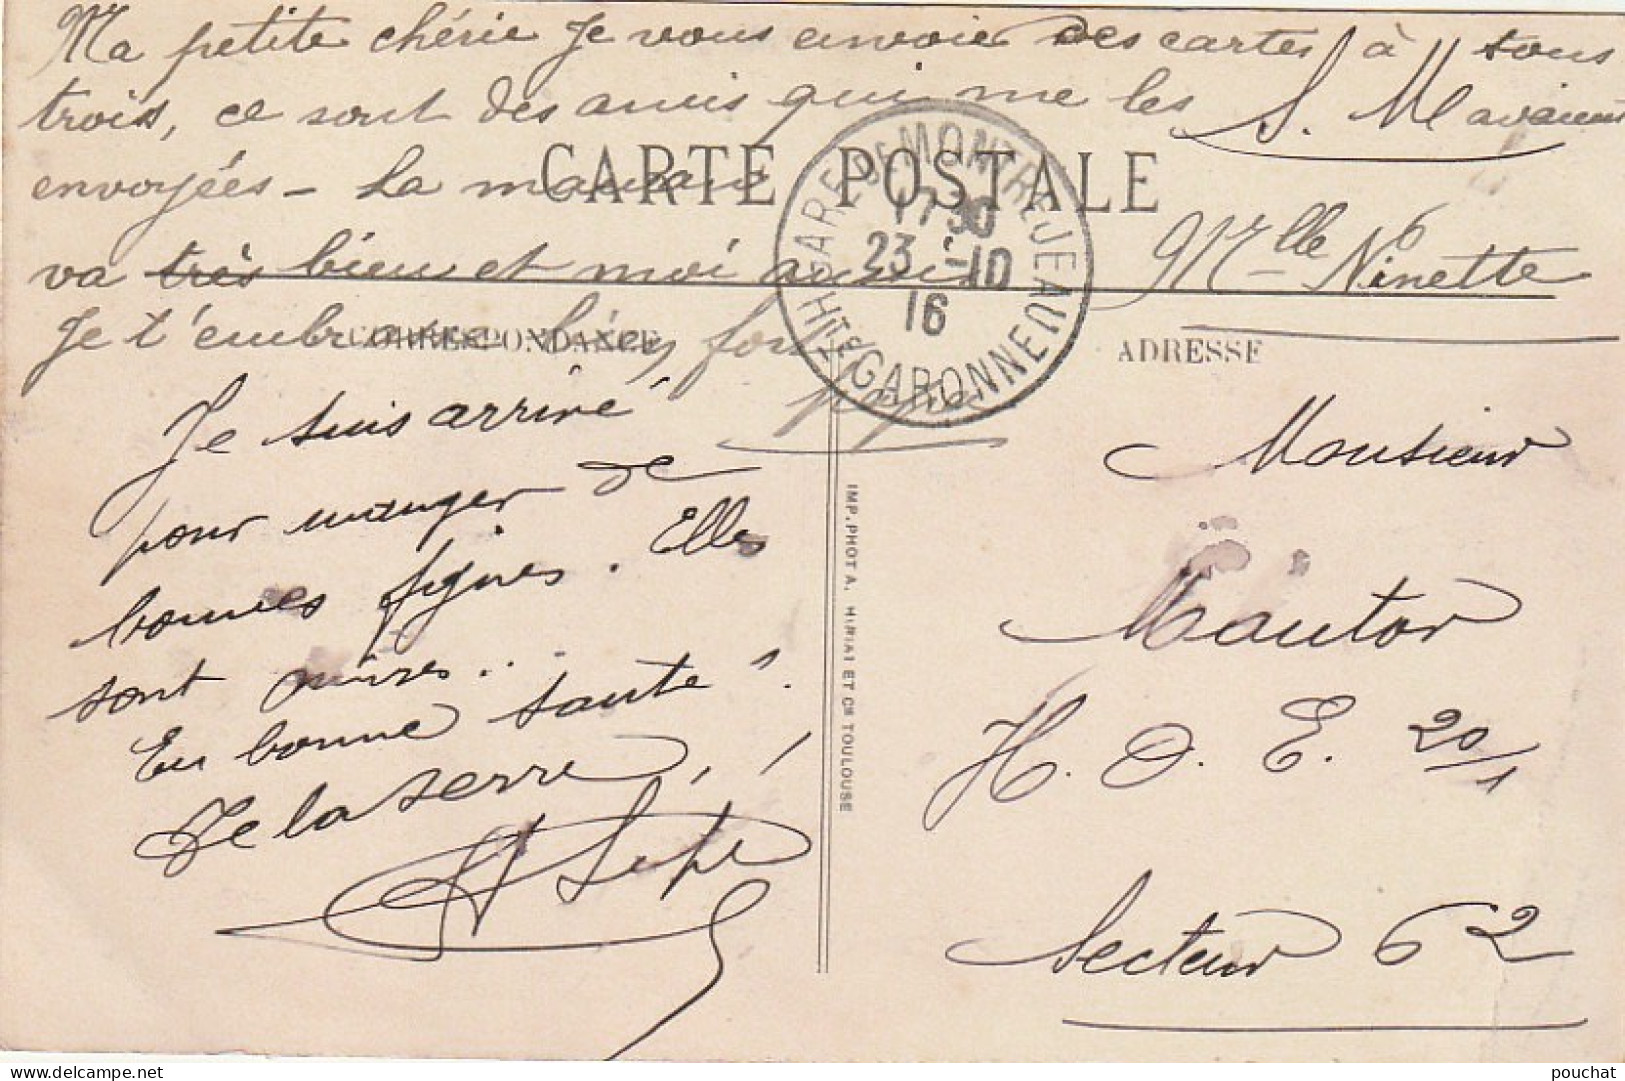 Ma petite chérie Je vous envoie des cartes à tous
trois, ce sont des amis qui me les
envoyées - La maman
va très bien et moi aussi
Je t'embrasse bien fort
CARTE POSTALE
CORRESPONDANCE
GARE DE MONTREJEAU
HTE GARONNE
17 30
23 - 10
16
S.
Mlle Ninette
ADRESSE
Je suis arrivé
pour manger de
bonnes figues. Elles
sont mûres..
En bonne santé!
Je la serre,!
IMP. PHOT A. HIRIAT ET Cie TOULOUSE
Monsieur
Mautor
H. O. E. 20/1
Secteur 62
pouchat